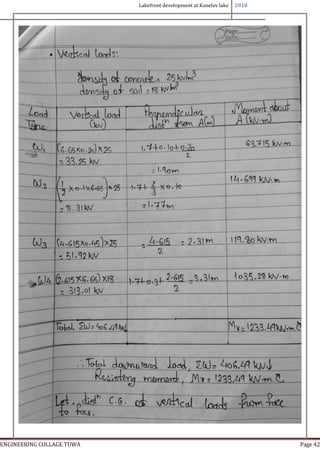 Lakefront development at Kanelav lake 2018
Page
Date
• Vertical loads:
density of concrete = 25 kN/m³
density of soil = 18 kN/m³
Load Type | Vertical load (kN) | Perpendicular distⁿ from A(m) | Moment about A (kN·m)
W₁ | (6.65×0.20)×25 = 33.25 kN | 1.7+0.10+0.20/2 = 1.90m | 63.715 kN·m
W₂ | (1/2 ×0.1×6.65)×25 = 8.31kN | 1.7+ 2/3 ×0.10 = 1.77m | 14.699 kN·m
W₃ | (4.615×0.45)×25 = 51.92 kN | = 4.615/2 = 2.31m | 119.80 kN·m
W₄ | (2.615×6.65)×18 = 313.01 kN | 1.7+0.3+ 2.615/2 = 3.31m | 1035.28 kN·m
Total ΣW=406.49kN | Mʀ=1233.49kN·m
∴ Total downward load, ΣW= 406.49 kN↓
Resisting moment, Mʀ= 1233.49 kN·m
Let, distⁿ C.G. of vertical loads from face
to face.
ENGINEERING COLLAGE TUWA Page 42